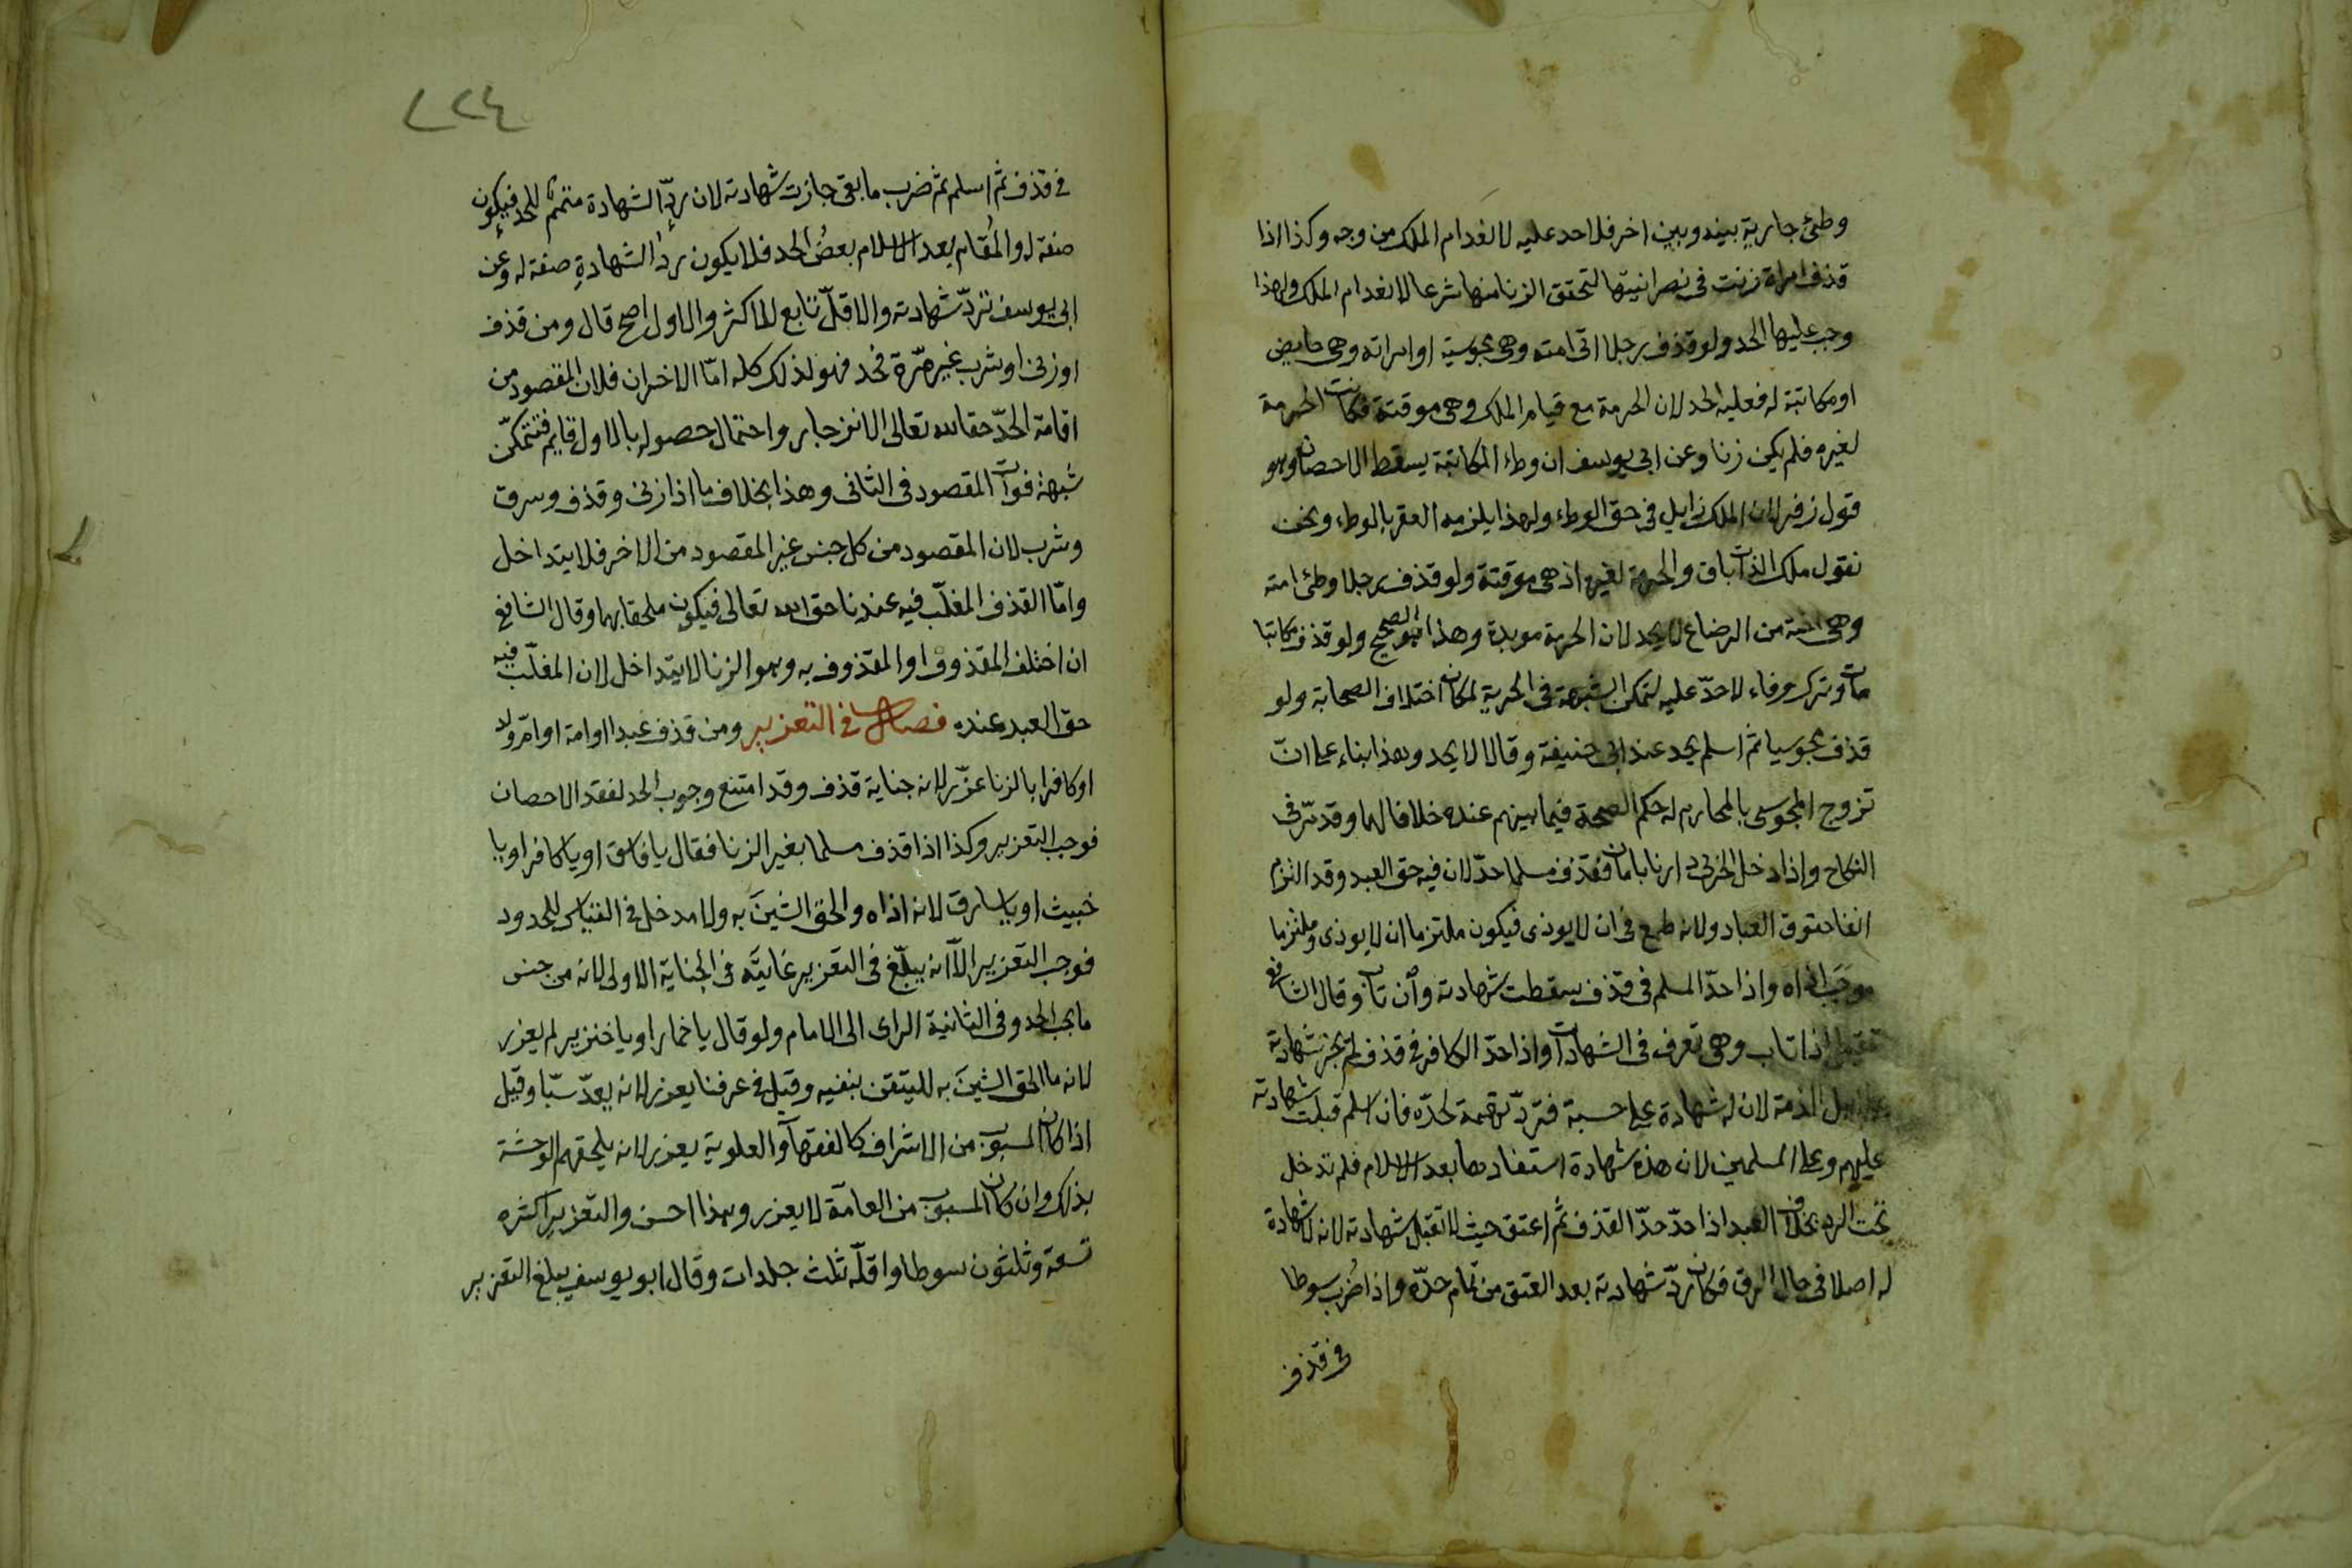 وطئ جارية بينه وبين اخر فلا حد عليه لانعدام الملك من وجه وكذا اذا
قذف امراة زنت في نصرانيتها لتحقق الزنا منها شرعا لانعدام الملك ولهذا
وجب عليها الحد ولو قذف رجلا اتى امته وهى مجوسية او امراته وهى حايض
او مكاتبة له فعليه الحد لان الحرمة مع قيام الملك وهى موقتة فكانت الحرمة
لغيره فلم يكن زنا وعن ابى يوسف ان وطء المكاتبة يسقط الاحصان وهو
قول زفر لان الملك زايل فى حق الوطء ولهذا يلزمه العقر بالوطء ونحن
نقول ملك الذات باق والحرمة لغيره اذ هى موقتة ولو قذف رجلا وطئ امته
وهى اخته من الرضاع لا يحد لان الحرمة موبدة وهذا هو الصحيح ولو قذف مكاتبا
مات وترك وفاء لا حدّ عليه لتمكن الشبهة فى الحرية لمكان اختلاف الصحابة ولو
قذف مجوسيا ثم اسلم يحد عند ابى حنيفة وقالا لا يحد وهذا بناء على انّ
تزوج المجوسى بالمحارم له حكم الصحة فيما بينهم عنده خلافا لهما وقد مرّ فى
النكاح واذا دخل الحربى دارنا بامان فقذف مسلما حدّ لان فيه حق العبد وقد التزم
ايفا حقوق العباد ولانه طمع فى ان لا يوذى فيكون ملتزما ان لا يوذى وملتزما
موجَب اذاه واذا حدّ المسلم فى قذف سقطت شهادته وان تاب وقال الشافعى
تقبل اذا تاب وهى تعرف فى الشهادات واذا حدّ الكافر فى قذف لم تجز شهادته
على اهل الذمة لان له شهادة على جنسه فتردّ تتمة لحدّه فان اسلم قبلت شهادته
عليهم وعلى المسلمين لان هذه شهادة استفادها بعد الاسلام فلم تدخل
تحت الرد بخلاف العبد اذا حدّ حدّ القذف ثم اعتق حيث لا تقبل شهادته لانه لا شهادة
له اصلا فى حال الرق فكان ردّ شهادته بعد العتق من تمام حدّه واذا ضُرب سوطا
فى قذف
٢٢٤
فى قذف ثم اسلم ثم ضرب ما بقى جازت شهادته لان ردّ الشهادة متمم للحد فيكون
صفة له والمُقام بعد الاسلام بعضُ الحد فلا يكون ردّ الشهادةِ صفة له وعن
ابى يوسف تردّ شهادته والاقلّ تابع للاكثر والاول اصح قال ومن قذف
او زنى او شرب غير مرّة فحد فهو لذلك كله امّا الاخران فلان المقصود من
اقامة الحدّ حقا لله تعالى الانزجار واحتمال حصوله بالاول قايم فتتمكّن
شُبهة فوات المقصود فى الثانى وهذا بخلاف ما اذا زنى وقذف وسرق
وشرب لان المقصود من كل جنس غير المقصود من الاخر فلا يتداخل
وامّا القذف المغلّب فيه عندنا حق الله تعالى فيكون ملحقا بهما وقال الشافعى
ان اختلف المقذوف او المقذوف به وهو الزنا لا يتداخل لان المغلّب فيه
حق العبد عنده فصل فى التعزير ومن قذف عبدا او امة او امّ ولد
او كافرا بالزنا عزّر لانه جناية قذف وقد امتنع وجوب الحد لفقد الاحصان
فوجب التعزير وكذا اذا قذف مسلما بغير الزنا فقال يا فاسق او يا كافر او يا
خبيث او يا سارق لانه اذاه والحق الشينَ به ولا مدخل فى القياس للحدود
فوجب التعزير الّا انه يبلّغ فى التعزير غايتَه فى الجناية الاولى لانه من جنس
ما يجب الحد وفى الثانية الراى الى الامام ولو قال يا خمار او يا خنزير لم يعزر
لانه ما الحق الشينَ به للتيقن بنفيه وقيل فى عرفنا يعزر لانه يعدّ سبّا وقيل
اذا كان المسبوب من الاشراف كالفقهآ والعلوية يعزر لانه يلحقهم الوحشة
بذلك وان كان المسبوب من العامّة لا يعزر وهذا احسن والتعزير اكثره
تسعة وثلثون سوطا واقلّه ثلث جلدات وقال ابو يوسف يبلغ التعزير